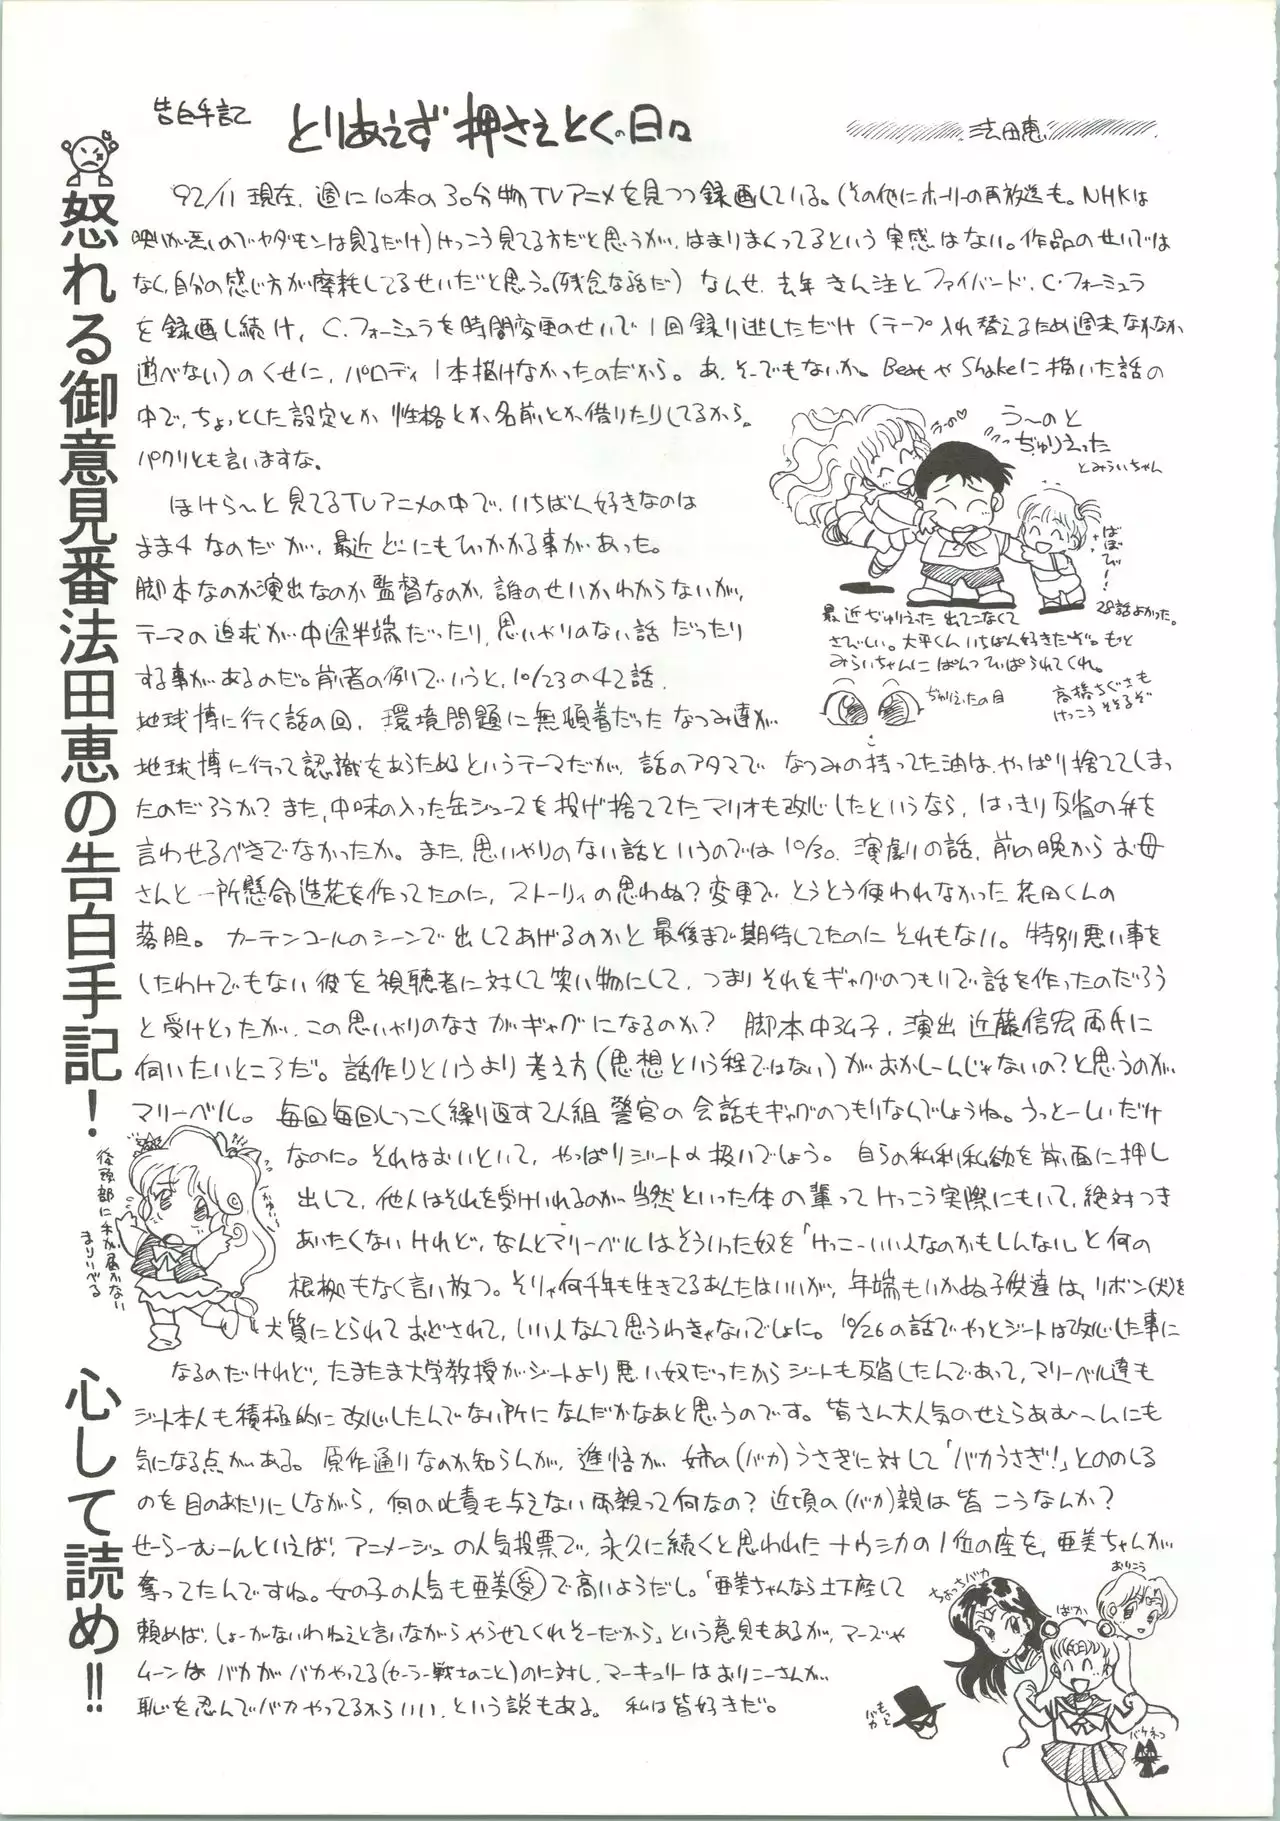 告白手記
とりあえず押さえとくの日々
法田恵
怒れる御意見番法田恵の告白手記!
心して読め!!
92/11現在、週に10本の30分物TVアニメを見つつ録画している。(その他にホーリーの再放送も。NHKは
映いが悪いのでヤダモンは見るだけ)けっこう見てる方だと思うが、はまりまくってるという実感はない。作品のせいでは
なく、自分の感じ方が摩耗してるせいだと思う。(残念な話だ) なんせ、去年きん注とファイバード、C・フォーミュラ
を録画し続け、C.フォーミュラを時間変更のせいで1回録り逃しただけ(テープ入れ替えるため週末なかなか
遊べない)のくせに、パロディ1本描けなかったのだから。あ、そーでもないか。BeatやShakeに描いた話の
中で、ちょっとした設定とか性格とか名前とか借りたりしてるから。
パクリとも言いますな。
ほけら〜と見てるTVアニメの中で、いちばん好きなのは
まま4なのだが、最近どこにもひっかかる事があった。
脚本なのか演出なのか監督なのか、誰のせいかわからないが、
テーマの追求が中途半端だったり、思いやりのない話だったり
する事があるのだ。前者の例でいうと、10/23の42話、
地球博に行く話の回、環境問題に無頓着だったなつみ達が
地球博に行って認識をあらためるというテーマだが、話のアタマでなつみの持ってた油は、やっぱり捨ててしまっ
たのだろうか?また、中味の入った缶ジュースを投げ捨ててたマリオも改心したというなら、はっきり反省の弁を
言わせるべきでなかったか。また、思いやりのない話というのでは10/30、演劇の話、前の晩からお母
さんと一所懸命造花を作ってたのに、ストーリィの思わぬ?変更でとうとう使われなかった花田くんの
落胆。カーテンコールのシーンで出してあげるのかと最後まで期待してたのにそれもない。特別悪い事を
したわけでもない彼を視聴者に対して笑い物にして、つまりそれをギャグのつもりで話を作ったのだろう
と受けとったが、この思いやりのなさがギャグになるのか? 脚本中弘子、演出近藤信宏両氏に
伺いたいところだ。話作りというより考え方(思想という程ではない)がおかしーんじゃないの?と思うのが
マリーベル。毎回毎回しつこく繰り返す2人組警官の会話もギャグのつもりなんでしょうね。うっとーしいだけ
なのに。それはおいといて、やっぱりジートの扱いでしょう。自らの私利私欲を前面に押し
出して、他人はそれを受けいれるのが当然といった体の輩ってけっこう実際にもいて、絶対つき
あいたくないけれど、なんとマリーベルはそういった奴を「けっこーいい人なのかもしんない」と何の
根拠もなく言い放つ。そりゃ何千年も生きてるあんたはいいが、年端もいかぬ子供達は、リボン(犬)を
犬質にとられておどされて、いい人なんて思うわきゃないでしょに。10/26の話でやっとジートは改心した事に
なるのだけれど、たまたま大学教授がジートより悪い奴だったからジートも反省したんであって、マリーベル達も
ジート本人も積極的に改心したんでない所になんだかなあと思うのです。皆さん大人気のせえらあむ〜んにも
気になる点がある。原作通りなのか知らんが、進悟が姉の(バカ)うさぎに対して「バカうさぎ!」とののしる
のを目のあたりにしながら、何の叱責も与えない両親って何なの?近頃の(バカ)親は皆こうなんか?
せーらーむーんといえば、アニメージュの人気投票で、永久に続くと思われたナウシカの1位の座を、亜美ちゃんが
奪ってたんですね。女の子の人気も亜美(受)で高いようだし。「亜美ちゃんなら土下座して
頼めば、しょーがないわねえと言いながらやらせてくれそーだから」という意見もあるが、マーズや
ムーンはバカがバカやってる(セーラー戦士のこと)のに対し、マーキュリーはおりこーさんが
恥を忍んでバカやってるからいい、という説もある。私は皆好きだ。
うーの♡
う〜のと
ぢゅりえった
とみらいちゃん
ばばび〜!
28話よかった。
最近ぢゅりえった出てこなくて
さびしい。大平くんいちばん好きだぞ。もと
みらいちゃんにぱんつひっぱられてくれ。
ぢゅりえったの目
高橋ちぐさも
けっこうそそるぞ
後頭部に手が届かない
まりいべる
かゆい〜
ちょっちバカ
おりこう
ばか
もっとバカ
バケネコ